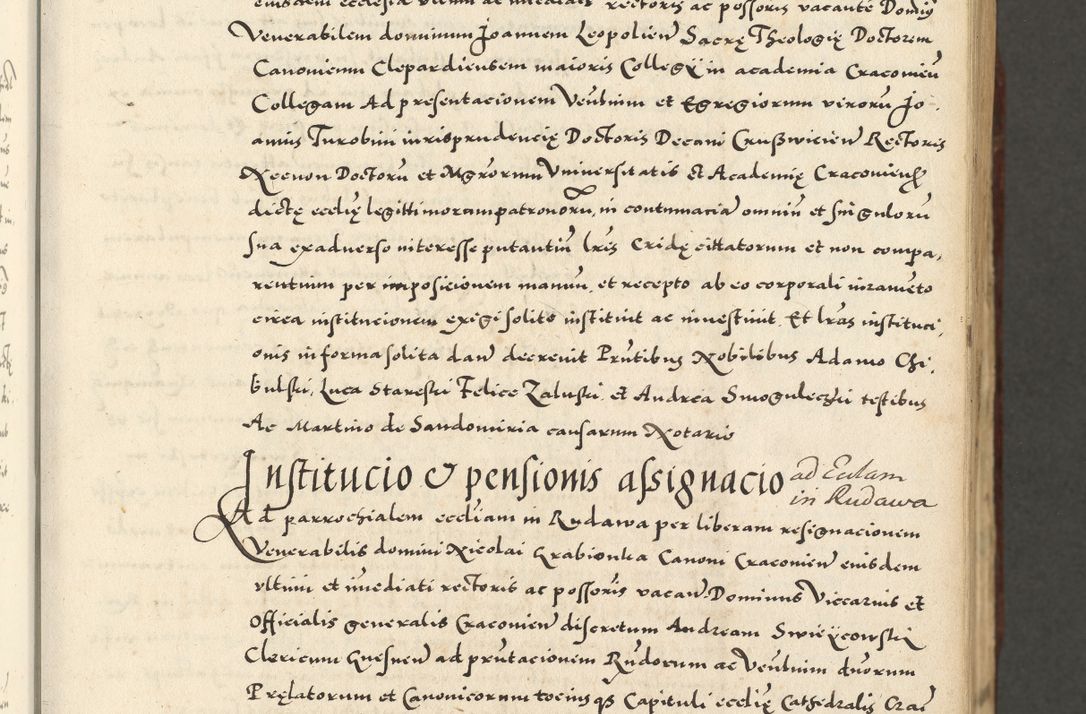 eiusdem ecclesia ultimi ac imediati rectoris ac possoris vacante Dominus
Venerabilem dominum Joannem Leopolien Sacrę Theologię Doctorem
Canonicum Clepardiensem maioris Collegÿ in academia Cracovien
Collegam Ad presentacionem Venlium et Egregiorum virorũ Jo
annis Turobini iurisprudencię Doctoris Decani Crusßwicien Rectoris
Necnon Doctorũ et Mgrorum Universitatis et Academię Cracovien
dictę ecclię legittimorum patronorũ, in contumaciã omniũ et singulorũ
sua exadverso interesse putantiũ lris Cridę cittatorum et non compa,
rentium per imposicionem manuũ, et recepto ab eo corporali iuramẽto
circa institucionem exigi solito instituit ac investivit. Et lras instituci,
onis in forma solita dan decrevit Prñtibus Nobilibus Adamo Chi,
bulski, Luca Stareski Felice Zaluski, et Andrea Smoguleczki testibus
Ac Martino de Sandomiria causarum Notario
Institucio & pensionis assignacio ad Eccl̃am
in Rudawa
Ad parrochialem eccliam in Rudawa per liberam resignacionem
Venerabilis domini Nicolai Grabionka Canoni Cracovien eiusdem
ultimi et imediati rectoris ac possoris vacan Dominus Viccarius et
Officialis generalis Cracovien discretum Andream Swięÿcowski
Clericum Gnesnen ad prñtacionem Rñdorum ac Venlium virorum
Pręlatorum et Canonicorum tociusqs Capituli ecclię Cathedralis Crac̃